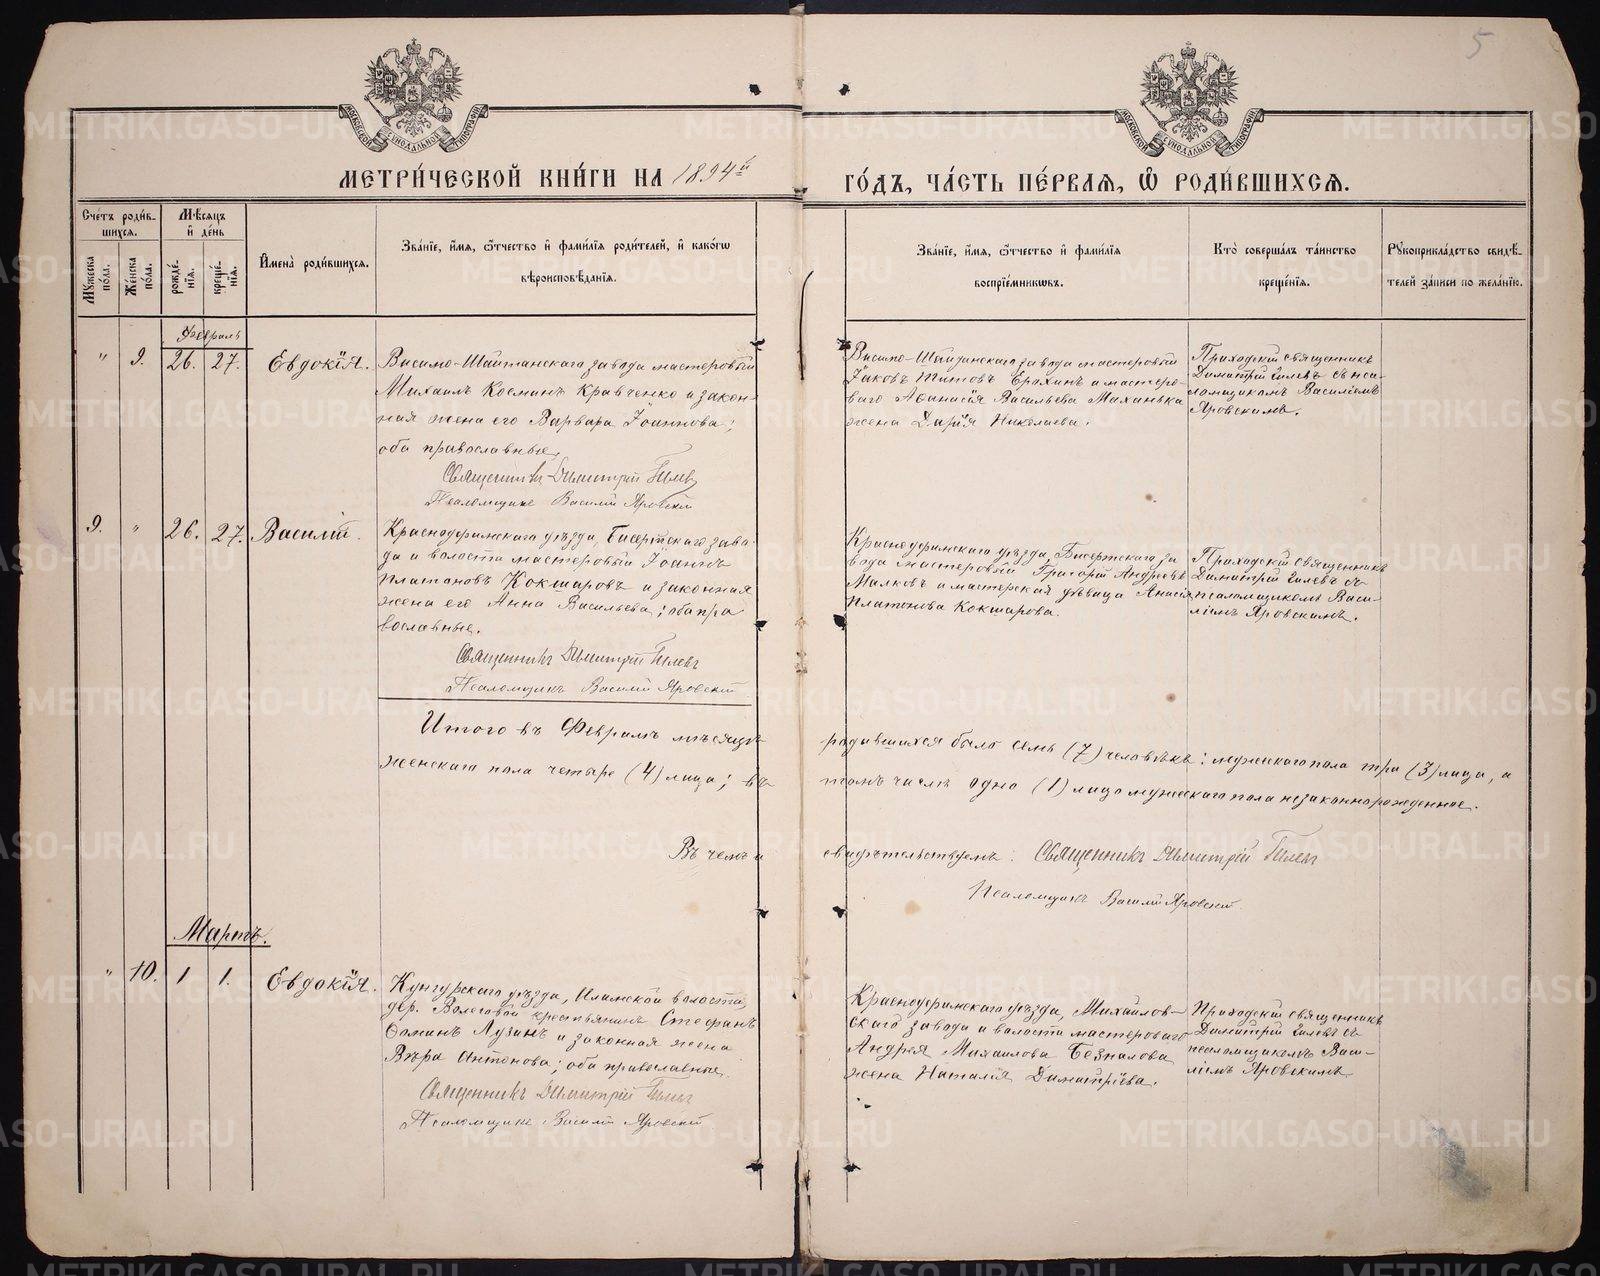 5
МОСКОВСКОЙ СѴНОДАЛЬНОЙ ТИПОГРАФІИ
МОСКОВСКОЙ СѴНОДАЛЬНОЙ ТИПОГРАФІИ
МЕТРИ́ЧЕСКОЙ КНИ́ГИ НА 1894й
ГО́ДЪ, ЧА́СТЬ ПЕ́РВАЯ, Ѿ РОДИ́ВШИХСЯ.
Сче́тъ роди́в-
шихся.
Мѣсяцъ
и҆ де́нь
Мꙋ́жеска
по́ла.
Же́нска
по́ла.
рожде́-
нїя.
креще́-
нїя.
И҆мена̀ роди́вшихся.
Зва́нїе, и҆́мя, ѻ҆́тчество и҆ фами́лїя роди́телей, и҆ како́гѡ
вѣроисповѣ́данїя.
Зва́нїе, и҆́мя, ѻ҆́тчество и҆ фами́лїя
воспрїе́мникѡвъ.
Кто̀ соверша́лъ та́инство
креще́нїя.
Рꙋкоприкла́дство свидѣ́-
телей за́писи по жела́нїю.
Февраль
" 9. 26. 27. Евдокія.
Васильо-Шайтанскаго завода мастеровый
Михаилъ Косминъ Кравченко и закон-
ная жена его Варвара Іоаннова;
оба православные,
Священникъ Димитрій Гилевъ
Псаломщикъ Василій Яровскій
Васильо-Шайтанскаго завода мастеровый
Іаковъ Титовъ Ерохинъ и мастеро-
ваго Аѳанасія Васильева Маханька
жена Дарія Николаева.
Приходскій священникъ
Димитрій Гилевъ съ пса-
ломщикомъ Василіемъ
Яровскимъ.
9. " 26. 27. Василій.
Красноуфимскаго уѣзда, Бисертскаго заво-
да и волости мастеровый Іоаннъ
Платоновъ Кокшаровъ и законная
жена его Анна Васильева; оба пра
вославные.
Священникъ Димитрій Гилевъ
Псаломщикъ Василій Яровскій
Красноуфимскаго уѣзда, Бисертскаго за
вода мастеровый Григорій Андреевъ
Малковъ и мастерская дѣвица
Платонова Кокшарова.
Приходскій священникъ
Димитрій Гилевъ съ
псаломщикомъ Васи-
ліемъ Яровскимъ.
Итого въ Февралѣ мѣсяцѣ родившихся было семь (7) человѣкъ: мужескаго пола три (3) лица, а
женскаго пола четыре (4) лица; въ томъ числѣ одно (1) лицо мужескаго пола незаконнорожденное.
Въ чемъ и свидѣтельствуемъ: Священникъ Димитрій Гилевъ
Псаломщикъ Василій Яровскій
Мартъ.
" 10. 1 1. Евдокія.
Кунгурскаго уѣзда, Илимской волости,
дер. крестьянинъ Стефанъ
Ѳоминъ Лузинъ и законная жена
Вѣра Антонова; оба православные.
Священникъ Димитрій Гилевъ
Псаломщикъ Василій Яровскій
Красноуфимскаго уѣзда, Михайлов-
скаго завода и волости мастероваго
Андрея Михаилова Безпалова
жена Наталія Димитріева.
Приходскій священникъ
Димитрій Гилевъ съ
псаломщикомъ Васи-
ліемъ Яровскимъ
METRIKI.GASO-URAL.RU